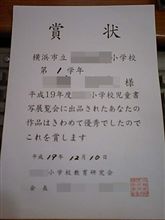 賞状
横浜市立 小学校
第1学年
様
平成19年度 小学校児童書
写展覧会に出品されたあなたの
作品はきわめて優秀でしたので
これを賞します
平成19年12月10日
小学校教育研究会
会長